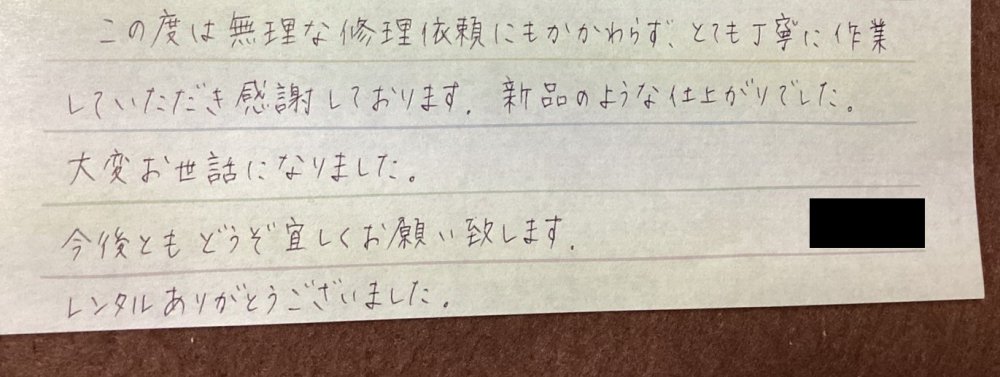 この度は無理な修理依頼にもかかわらず、とても丁寧に作業
していただき感謝しております。新品のような仕上がりでした。
大変お世話になりました。
今後ともどうぞ宜しくお願い致します。
レンタルありがとうございました。